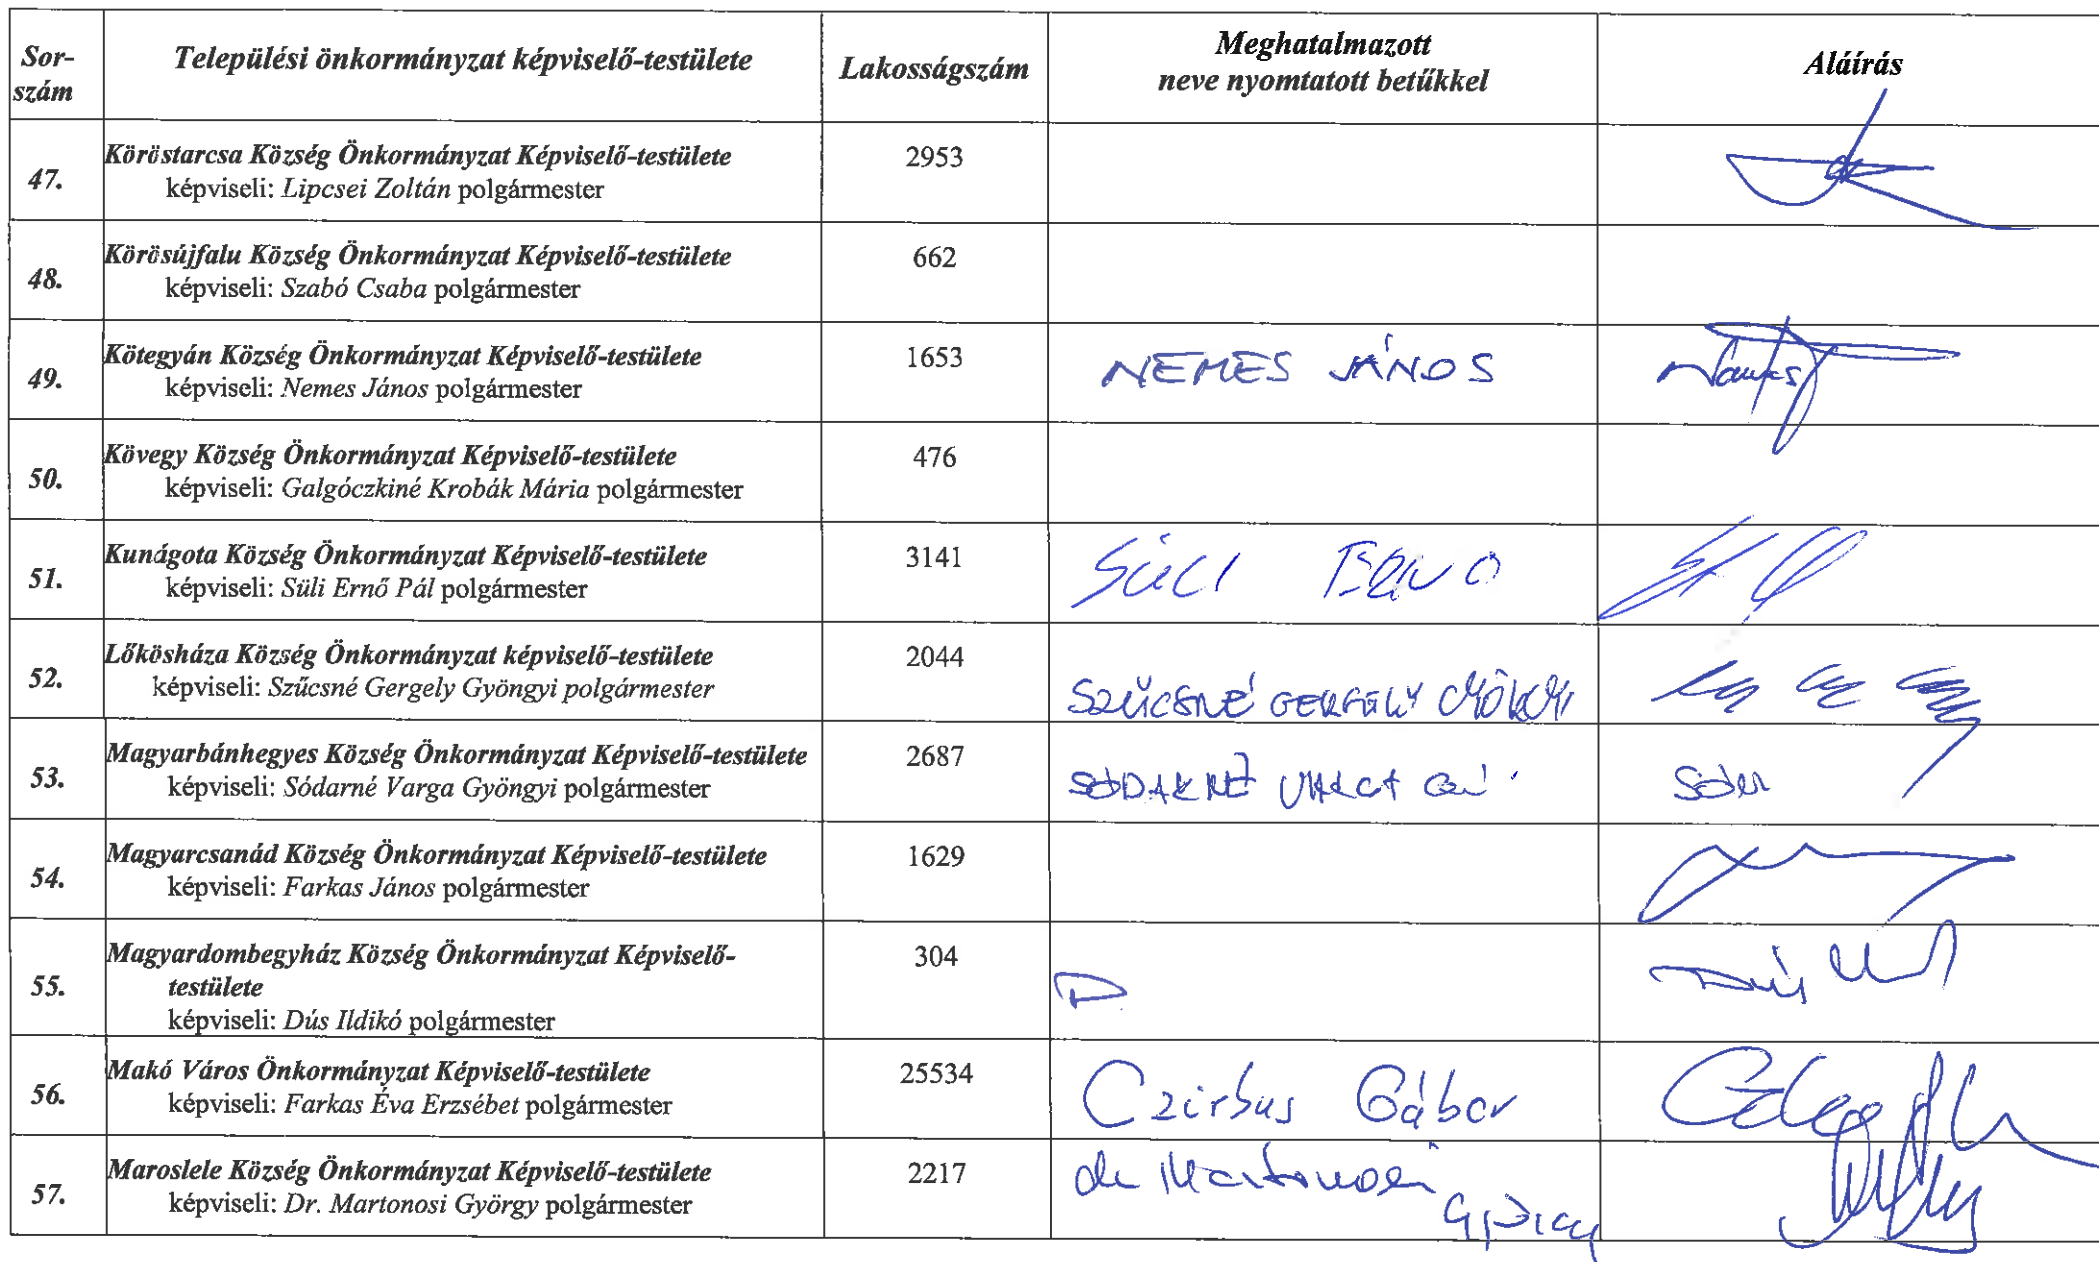 Sor-
szám
Települési önkormányzat képviselő-testülete
Lakosságszám
Meghatalmazott
neve nyomtatott betűkkel
Aláírás
47.
Köröstarcsa Község Önkormányzat Képviselő-testülete
képviseli: Lipcsei Zoltán polgármester
2953
48.
Körösújfalu Község Önkormányzat Képviselő-testülete
képviseli: Szabó Csaba polgármester
662
49.
Kötegyán Község Önkormányzat Képviselő-testülete
képviseli: Nemes János polgármester
1653
NEMES JÁNOS
50.
Kövegy Község Önkormányzat Képviselő-testülete
képviseli: Galgóczkiné Krobák Mária polgármester
476
51.
Kunágota Község Önkormányzat Képviselő-testülete
képviseli: Süli Ernő Pál polgármester
3141
SÜLI ERNO
52.
Lőkösháza Község Önkormányzat képviselő-testülete
képviseli: Szűcsné Gergely Gyöngyi polgármester
2044
SZŰCSNÉ GERGELY GYÖNGYI
53.
Magyarbánhegyes Község Önkormányzat Képviselő-testülete
képviseli: Sódarné Varga Gyöngyi polgármester
2687
SÓDARNÉ VARGA
54.
Magyarcsanád Község Önkormányzat Képviselő-testülete
képviseli: Farkas János polgármester
1629
55.
Magyardombegyház Község Önkormányzat Képviselő-
testülete
képviseli: Dús Ildikó polgármester
304
D
56.
Makó Város Önkormányzat Képviselő-testülete
képviseli: Farkas Éva Erzsébet polgármester
25534
Czirbus Gábor
57.
Maroslele Község Önkormányzat Képviselő-testülete
képviseli: Dr. Martonosi György polgármester
2217
dr Martonosi
György